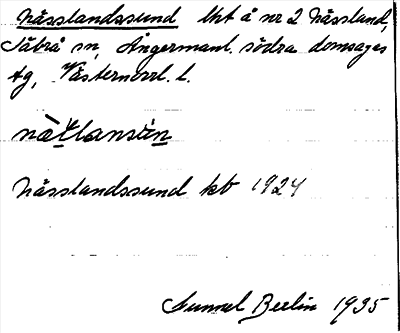 Nässlandssund lht å nr 2 Nässland,
Säbrå sn, Ångermanl. södra domsagas
tg, Västernorrl. l.
nä̀tlansúṇ
Nässlandssund kb 1924
Gunnel Berlin 1935